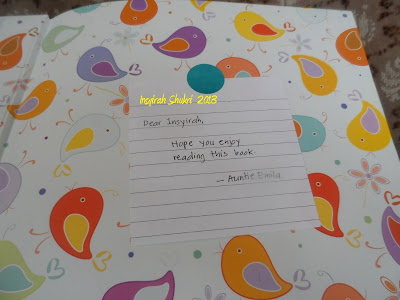 Insyirah Shukri 2013
Dear Insyirah,
Hope you enjoy
reading this book.
-- Auntie Emila